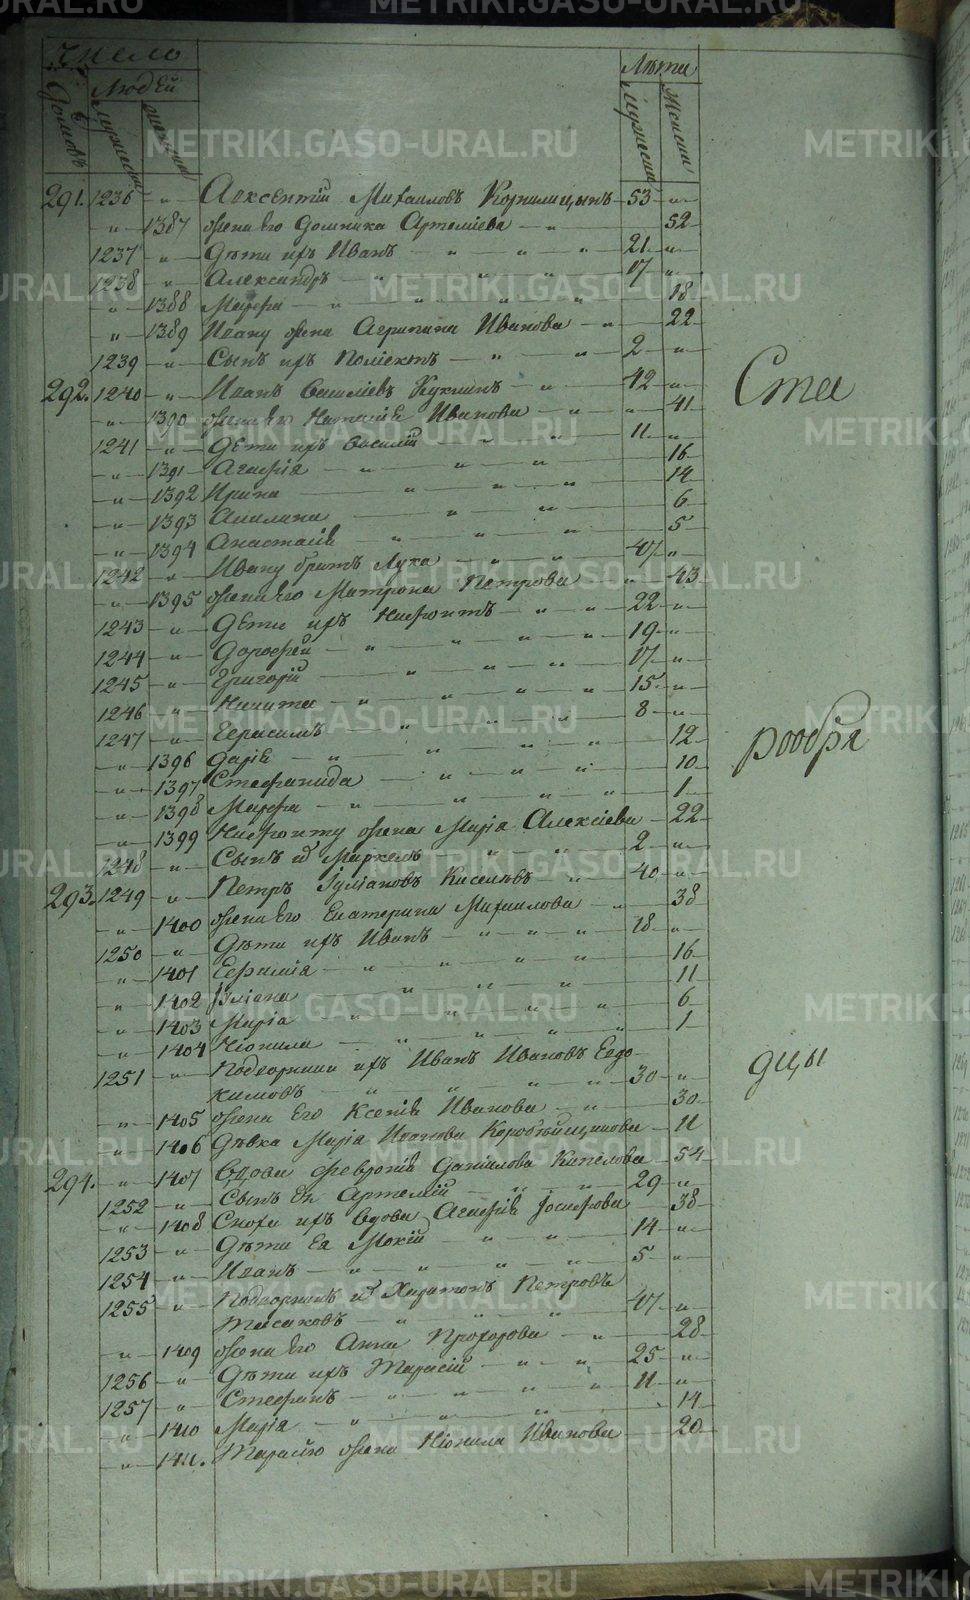 METRIKI.GASO-URAL.RU
Число
Домовъ
Людей
Мужески
Женски
Лѣта
Мужески
Женски
291. 1236 " Авксентій Михаиловъ Кормилицынъ 53 "
" 1387 жена Его Домника Артеміева " 52
1237 " Дѣти ихъ Иванъ " " " 21 "
1238 " Александръ " " " 17 "
" 1388 Марфа " " " " 18
" 1389 Ивану жена Агрипина Иванова " 22
1239 " Сынъ ихъ Поліектъ " " 2 "
292. 1240 " Иванъ Василіевъ Куклинъ " 42 "
" 1390 жена Его Наталія Иванова " " 41
1241 " Дѣти ихъ Василій " " 11 "
" 1391 Агафія " " " 16
" 1392 Ирина " " " 14
" 1393 Акилина " " 6
" 1394 Анастасія " " " 5
1242 " Ивану братъ Лука " " 47 "
" 1395 жена Его Матрона Петрова " 43
1243 " Дѣти ихъ Нифонтъ " " 22 "
1244 " Дорофей " " " " 19 "
1245 " Григорій " " " 17 "
1246 " Никита " " " " 15 "
1247 " Герасимъ " " " 8 "
" 1396 Дарія " " " " 12
" 1397 Стефанида " " " 10
" 1398 Марфа " " " " 1
" 1399 Нифонту жена Марія Алексіева 22
1248 " Сынъ ихъ Маркелъ " " 2 "
293. 1249 " Петръ Іуліановъ Киселевъ " 40 "
" 1400 жена Его Екатерина Михаилова " 38
1250 " Дѣти ихъ Иванъ " " " 18 "
" 1401 Евфимія " " " " 16
" 1402 Іуліана " " " 11
" 1403 Марія " " " " 6
" 1404 Неонила " " " " 1
1251 " Подворники ихъ Иванъ Ивановъ Евдо-
кимовъ " " " " 30 "
" 1405 жена Его Ксенія Иванова " 30
" 1406 Дѣвка Марія Иванова 11
294. " 1407 Вдова Февронія Даніилова 54
1252 " Сынъ Ея Артемій " " 29 "
" 1408 Сноха ихъ вдова Агафія Іосифова 38
1253 " Дѣти Ея Мокій " " 14 "
1254 " Иванъ " " " " 5 "
1255 " Подворникъ ихъ Харитонъ Петровъ
" " " 47 "
" 1409 жена Его Анна Прохорова " 28
1256 " Дѣти ихъ Тарасій " " " 25 "
1257 " Стефанъ " " " " 11 "
" 1410 Марія " " " 14
" 1411. Тарасію жена Неонила Иванова 20
Ста
рообря
дцы